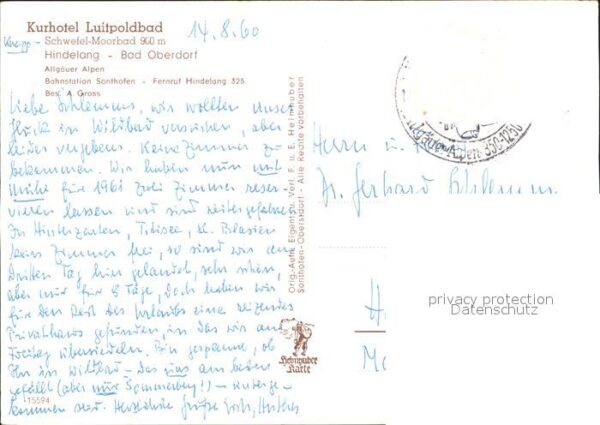 Kurhotel Luitpoldbad
14.8.60
Kneipp - Schwefel-Moorbad 900 m
Hindelang - Bad Oberdorf
Allgäuer Alpen
Bahnstation Sonthofen - Fernruf Hindelang 325
Bes. A. Gross
Liebe Schlemms, wir wollten unser
Glück in Wildbad versuchen, aber
leider vergebens. Keine Zimmer zu
bekommen. Wir haben nun mit
Mühe für 1961 zwei Zimmer reser-
vieren lassen und sind weitergefahren.
In Hinterzarten, Titisee, St. Blasien
kein Zimmer frei, so sind wir am
Dritten Tag hier gelandet, sehr schön,
aber nur für 8 Tage, doch haben wir
für den Rest des Urlaubs eine reizendes
Privathaus gefunden, in das wir am
Freitag übersiedeln. Bin gespannt, ob
Ihr in Wildbad - das uns am besten
gefällt (aber nur Sommerberg!) - unterge-
kommen seid. Herzlichste Grüße
15594
Orig.-Aufn. Eigentum u. Verl. F. u. E. Heimhuber
Sonthofen-Oberstdorf - Alle Rechte vorbehalten
Heimhuber
Karte
Allgäuer Alpen 850-1250
Herrn u.
Dr. Gerhard Schlemm
privacy protection
Datenschutz